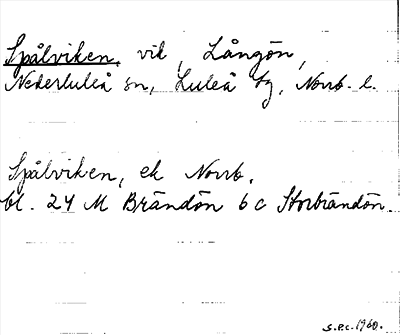 Spålviken, vik, Långön,
Nederluleå sn, Luleå tg, Norrb. l.
Spålviken, ek Norrb.
bl. 24 M Brändön 6 c Storbrändön.
S.P.C. 1960.